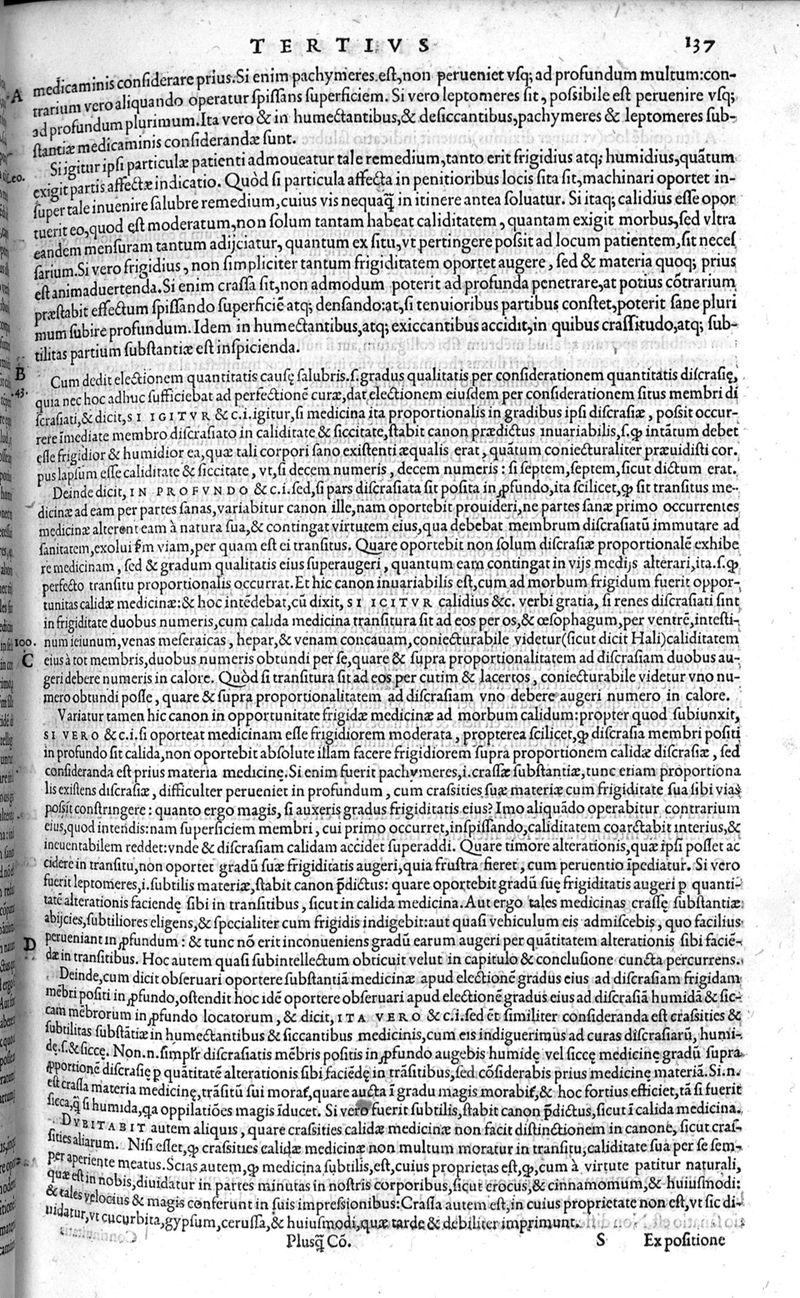 TERTIVS 137
A medicaminis considerare prius. Si enim pachymeres est, non perueniet vsq; ad profundum multum: con-
trarium vero aliquando operatur spissans superficiem. Si vero leptomeres sit, possibile est peruenire vsq;
ad profundum plurimum. Ita vero & in humectantibus, & desiccantibus, pachymeres & leptomeres sub-
stantiæ medicaminis considerandæ sunt.
Si igitur ipsi particulæ patienti admoueatur tale remedium, tanto erit frigidius atq; humidius, quãtum
eo. exigit partis affectæ indicatio. Quòd si particula affecta in penitioribus locis sita sit, machinari oportet in-
super tale inuenire salubre remedium, cuius vis nequaq̃ in itinere antea soluatur. Si itaq; calidius esse opor
tuerit eo, quod est moderatum, non solum tantam habeat caliditatem, quantam exigit morbus, sed vltra
eandem mensuram tantum adijciatur, quantum ex situ, vt pertingere possit ad locum patientem, sit neces
sarium. Si vero frigidius, non simpliciter tantum frigiditatem oportet augere, sed & materia quoq; prius
est animaduertenda. Si enim crassa sit, non admodum poterit ad profunda penetrare, at potius cõtrarium
præstabit effectum spissando superficiẽ atq; densando: at, si tenuioribus partibus constet, poterit sane pluri
mum subire profundum. Idem in humectantibus, atq; exiccantibus accidit, in quibus crassitudo, atq; sub-
tilitas partium substantiæ est inspicienda.
B Cum dedit electionem quantitatis causę salubris. s. gradus qualitatis per considerationem quantitatis discrasię,
43. quia nec hoc adhuc sufficiebat ad perfectionẽ curæ, dat electionem eiusdem per considerationem situs membri di
scrasiati, & dicit, SI IGITVR & c. i. igitur, si medicina ita proportionalis in gradibus ipsi discrasiæ, possit occur-
rere ĩmediate membro discrasiato in caliditate & siccitate, stabit canon prædictus inuariabilis, s. ꝙ intãtum debet
esse frigidior & humidior ea, quæ tali corpori sano existenti æqualis erat, quãtum coniecturaliter præuidisti cor.
pus lapsum esse caliditate & siccitate, vt, si decem numeris, decem numeris: si septem, septem, sicut dictum erat.
Deinde dicit, IN PROFVNDO & c. i. sed, si pars discrasiata sit posita in ꝓfundo, ita scilicet, ꝙ sit transitus me-
dicinæ ad eam per partes sanas, variabitur canon ille, nam oportebit prouideri, ne partes sanæ primo occurrentes
medicinæ alterent eam à natura sua, & contingat virtutem eius, qua debebat membrum discrasiatũ immutare ad
sanitatem, exolui fm viam, per quam est ei transitus. Quare oportebit non solum discrasiæ proportionalẽ exhibe
re medicinam, sed & gradum qualitatis eius superaugeri, quantum eam contingat in vijs medijs alterari, ita. s. ꝙ
perfecto transitu proportionalis occurrat. Et hic canon inuariabilis est, cum ad morbum frigidum fuerit oppor-
tunitas calidæ medicinæ: & hoc intẽdebat, cũ dixit, SI IGITVR calidius &c. verbi gratia, si renes discrasiati sint
in frigiditate duobus numeris, cum calida medicina transitura sit ad eos per os, & œsophagum, per ventrẽ, intesti-
100. num ieiunum, venas meseraicas, hepar, & venam concauam, coniecturabile videtur (sicut dicit Hali) caliditatem
C eius à tot membris, duobus numeris obtundi per se, quare & supra proportionalitatem ad discrasiam duobus au-
geri debere numeris in calore. Quòd si transitura sit ad eos per cutim & lacertos, coniecturabile videtur vno nu-
mero obtundi posse, quare & supra proportionalitatem ad discrasiam vno debere augeri numero in calore.
Variatur tamen hic canon in opportunitate frigidæ medicinæ ad morbum calidum: propter quod subiunxit,
SI VERO & c. i. si oporteat medicinam esse frigidiorem moderata, propterea scilicet, ꝙ discrasia membri positi
in profundo sit calida, non oportebit absolute illam facere frigidiorem supra proportionem calidæ discrasiæ, sed
consideranda est prius materia medicinę. Si enim fuerit pachymeres, i. crassæ substantiæ, tunc etiam proportiona
lis existens discrasiæ, difficulter perueniet in profundum, cum crassities suæ materiæ cum frigiditate sua sibi vias
possit constringere: quanto ergo magis, si auxeris gradus frigiditatis eius? Imo aliquãdo operabitur contrarium
eius, quod intendis: nam superficiem membri, cui primo occurret, inspissando, caliditatem coarctabit interius, &
ineuentabilem reddet: vnde & discrasiam calidam accidet superaddi. Quare timore alterationis, quæ ipsi posset ac
cidere in transitu, non oportet gradũ suæ frigiditatis augeri, quia frustra fieret, cum peruentio ĩpediatur. Si vero
fuerit leptomeres, i. subtilis materiæ, stabit canon p̃dictus: quare oportebit gradũ suę frigiditatis augeri p quanti-
tatẽ alterationis faciendę sibi in transitibus, sicut in calida medicina. Aut ergo tales medicinas crassę substantiæ
abijcies, subtiliores eligens, & specialiter cum frigidis indigebit: aut quasi vehiculum eis admiscebis, quo facilius
D perueniant in ꝓfundum: & tunc nõ erit inconueniens gradũ earum augeri per quãtitatem alterationis sibi faciẽ-
dæ in transitibus. Hoc autem quasi subintellectum obticuit velut in capitulo & conclusione cuncta percurrens.
Deinde, cum dicit obseruari oportere substantiã medicinæ apud electionẽ gradus eius ad discrasiam frigidam
mẽbri positi in ꝓfundo, ostendit hoc idẽ oportere obseruari apud electionẽ gradus eius ad discrasiã humidã & sic-
cam mẽbrorum in ꝓfundo locatorum, & dicit, ITA VERO & c. i. sed ẽt similiter consideranda est crassities &
subtilitas substãtiæ in humectantibus & siccantibus medicinis, cum eis indiguerimus ad curas discrasiarũ, humi-
dę. s. & siccę. Non. n. simplr̃ discrasiatis mẽbris positis in ꝓfundo augebis humidę vel siccę medicinę gradũ supra
ꝓportionẽ discrasię p quãtitatẽ alterationis sibi faciẽdę in trãsitibus, sed cõsiderabis prius medicinę materiã. Si. n.
est crassa materia medicinę, trãsitũ sui moraf, quare aucta ĩ gradu magis morabif, & hoc fortius efficiet, tã si fuerit
sicca, q̃ si humida, qa oppilatiões magis ĩducet. Si vero fuerit subtilis, stabit canon p̃dictus, sicut ĩ calida medicina.
DVBITABIT autem aliquis, quare crassities calidæ medicinæ non facit distinctionem in canone, sicut cras-
sities aliarum. Nisi esset, ꝙ crassities calidæ medicinæ non multum moratur in transitu, caliditate sua per se sem-
per aperiente meatus. Scias autem, ꝙ medicina subtilis, est, cuius proprietas est, ꝙ, cum à virtute patitur naturali,
quæ est in nobis, diuidatur in partes minutas in nostris corporibus, sicut crocus, & cinnamomum, & huiusmodi:
& tales velocius & magis conferunt in suis impressionibus: Crassa autem est, in cuius proprietate non est, vt sic di-
uidatur, vt cucurbita, gypsum, cerussa, & huiusmodi, quæ tarde & debiliter imprimunt.
Plusq̃ Cõ. S Expositione